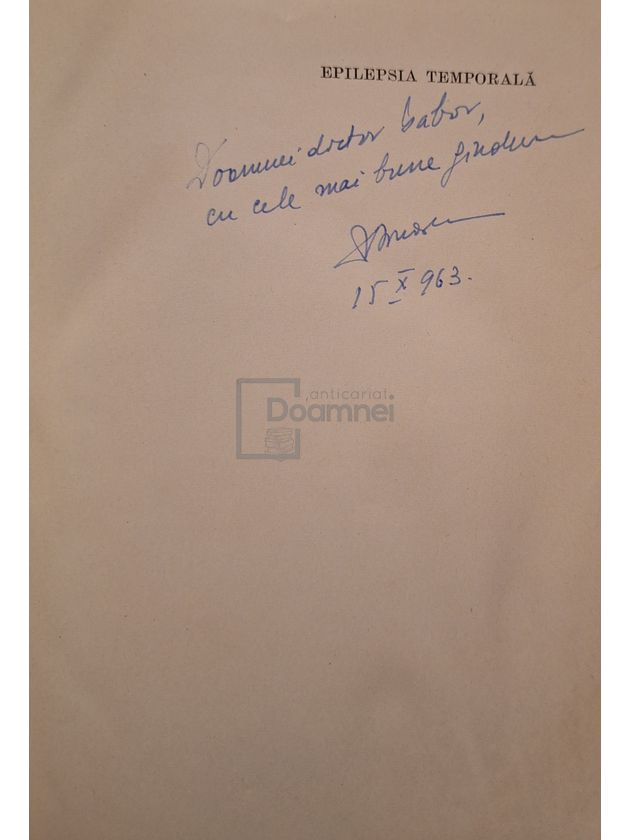 EPILEPSIA TEMPORALĂ
Doamnei doctor Gabor,
cu cele mai bune gînduri
15 X 963.
anticariat
Doamnei